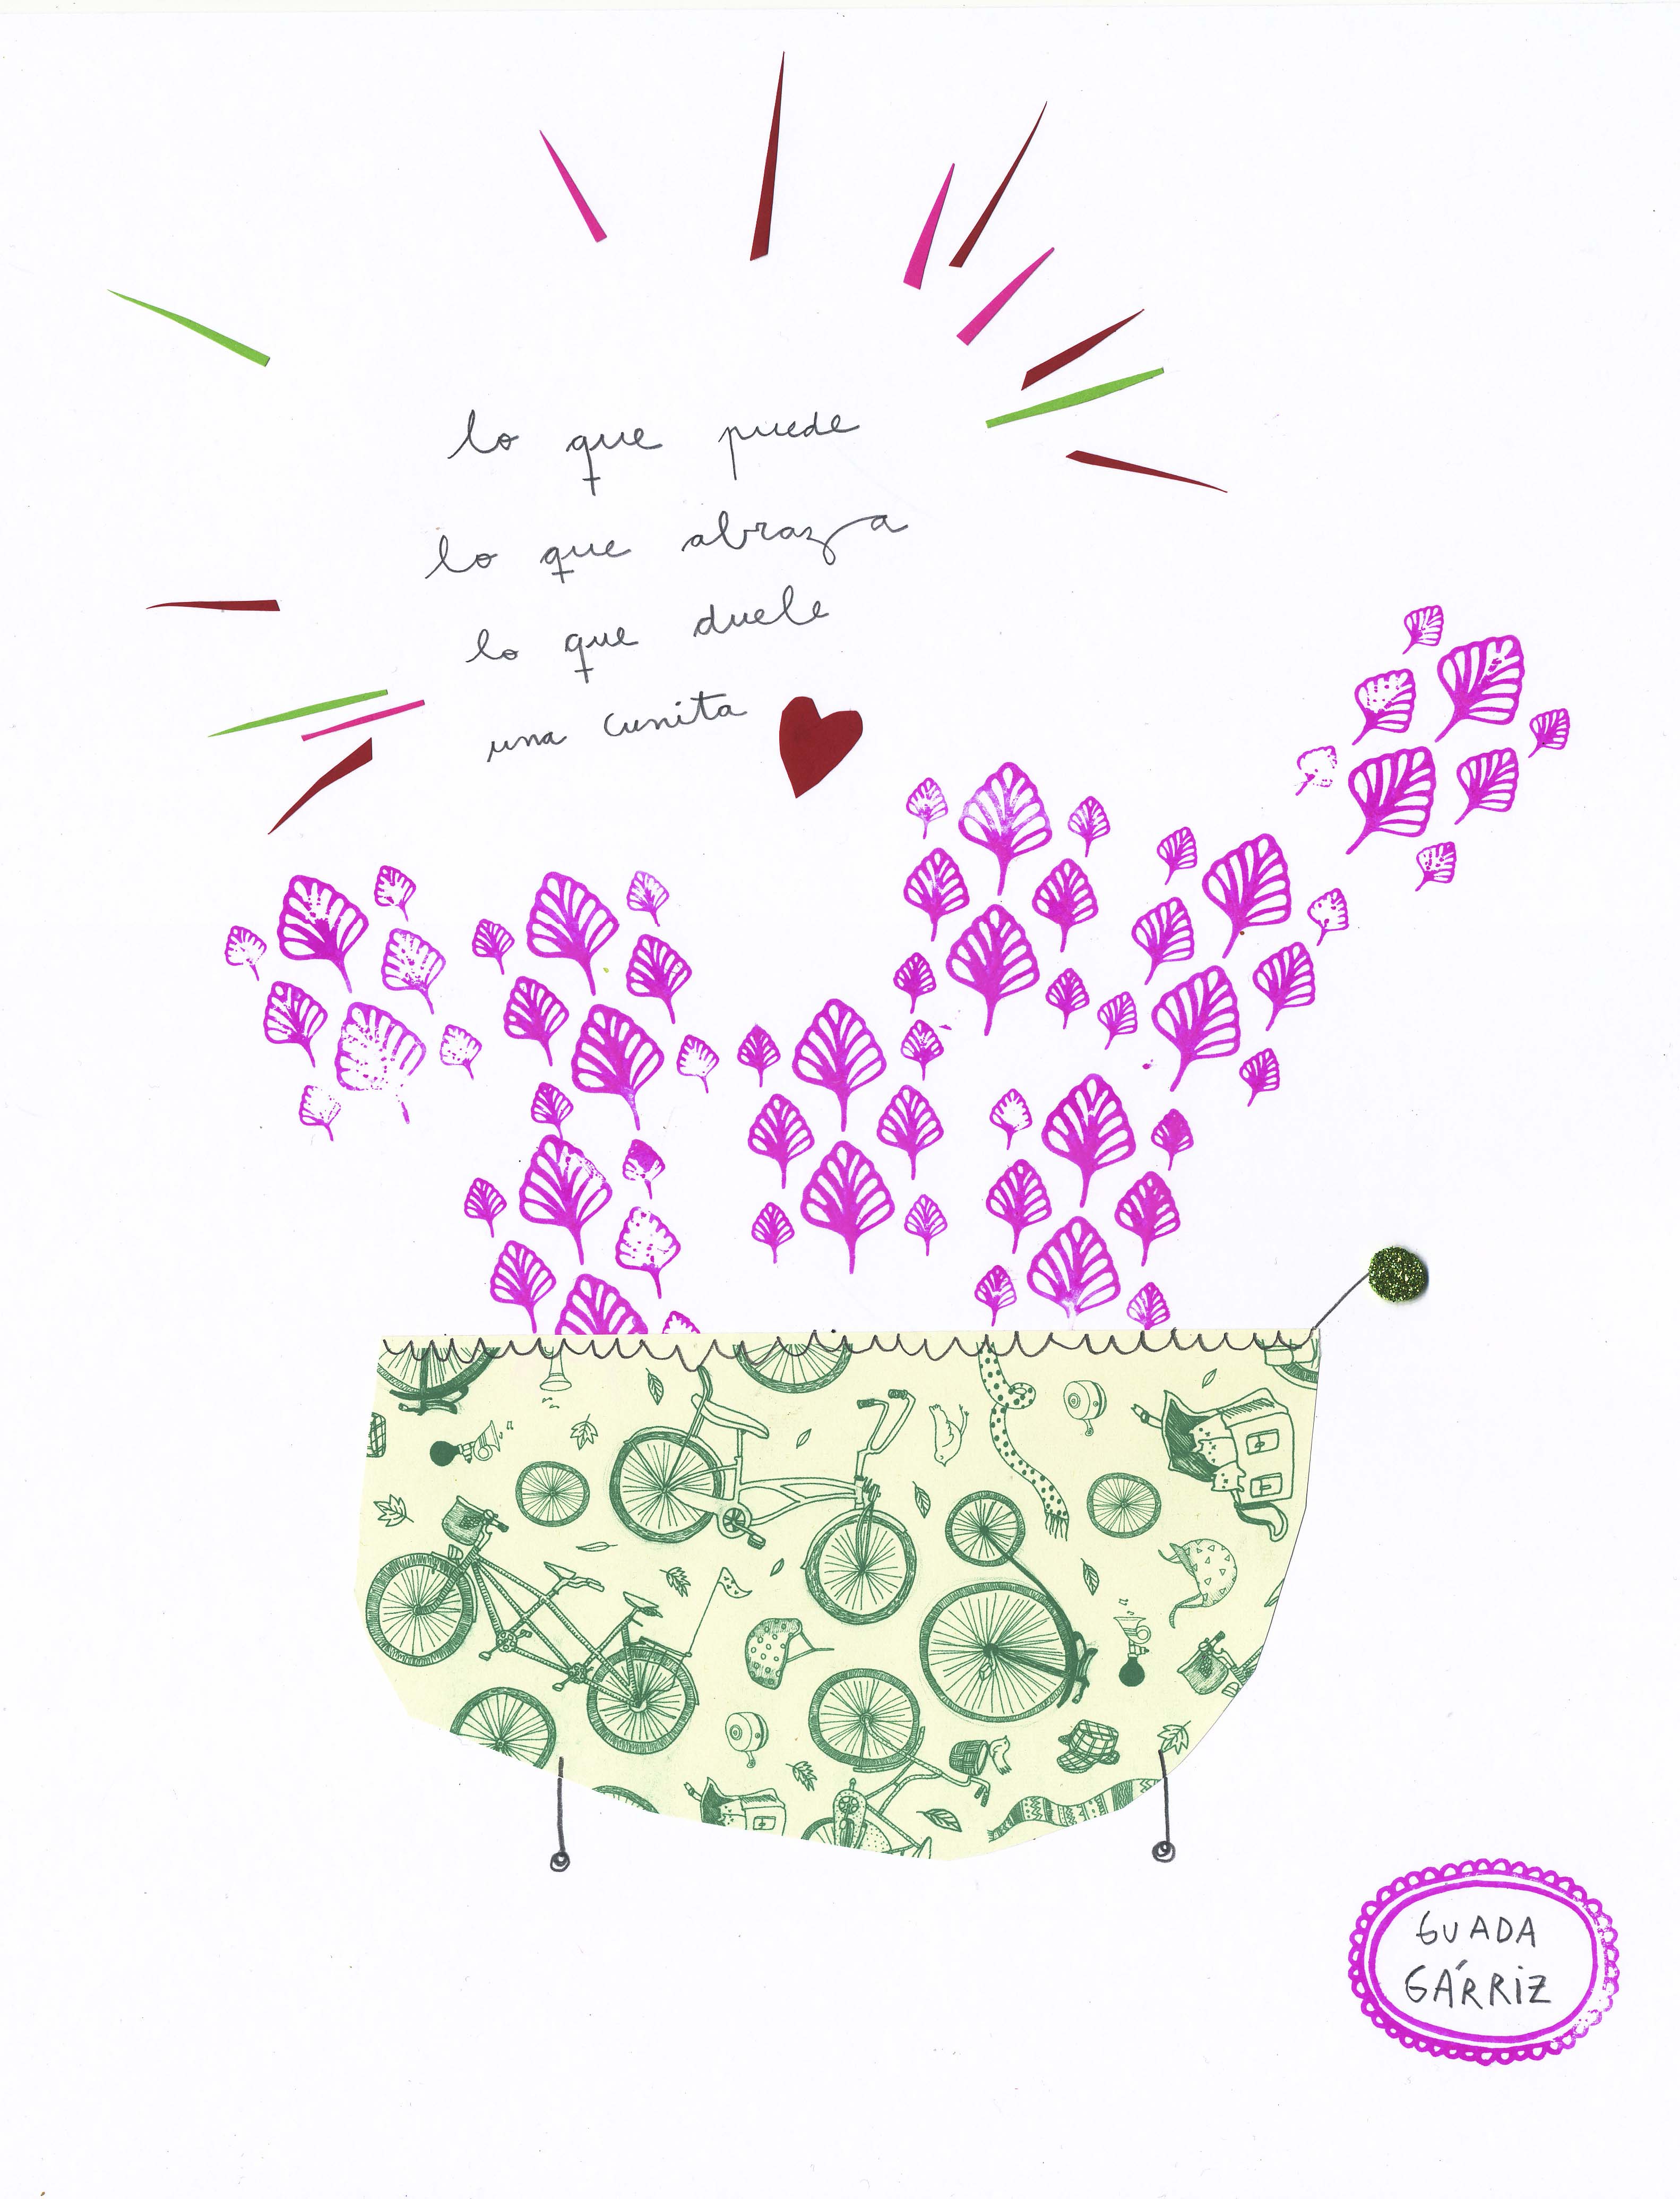 lo que puede
lo que abraza
lo que duele
una cunita
GUADA
GÁRRIZ